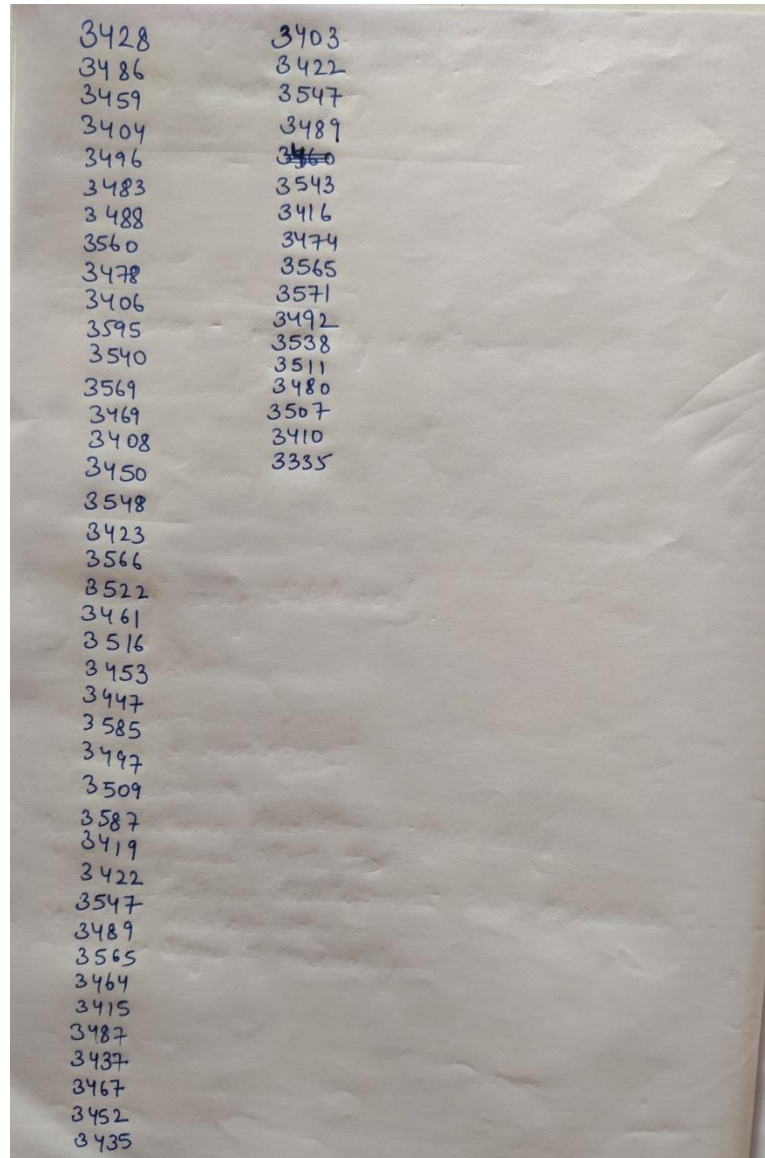 3428
3486
3459
3404
3496
3483
3488
3560
3478
3406
3595
3540
3569
3469
3408
3450
3548
3423
3566
3522
3461
3516
3453
3447
3585
3497
3509
3587
3419
3422
3547
3489
3565
3464
3415
3487
3437
3467
3452
3435
3403
3422
3547
3489
3543
3416
3474
3565
3571
3492
3538
3511
3480
3507
3410
3335